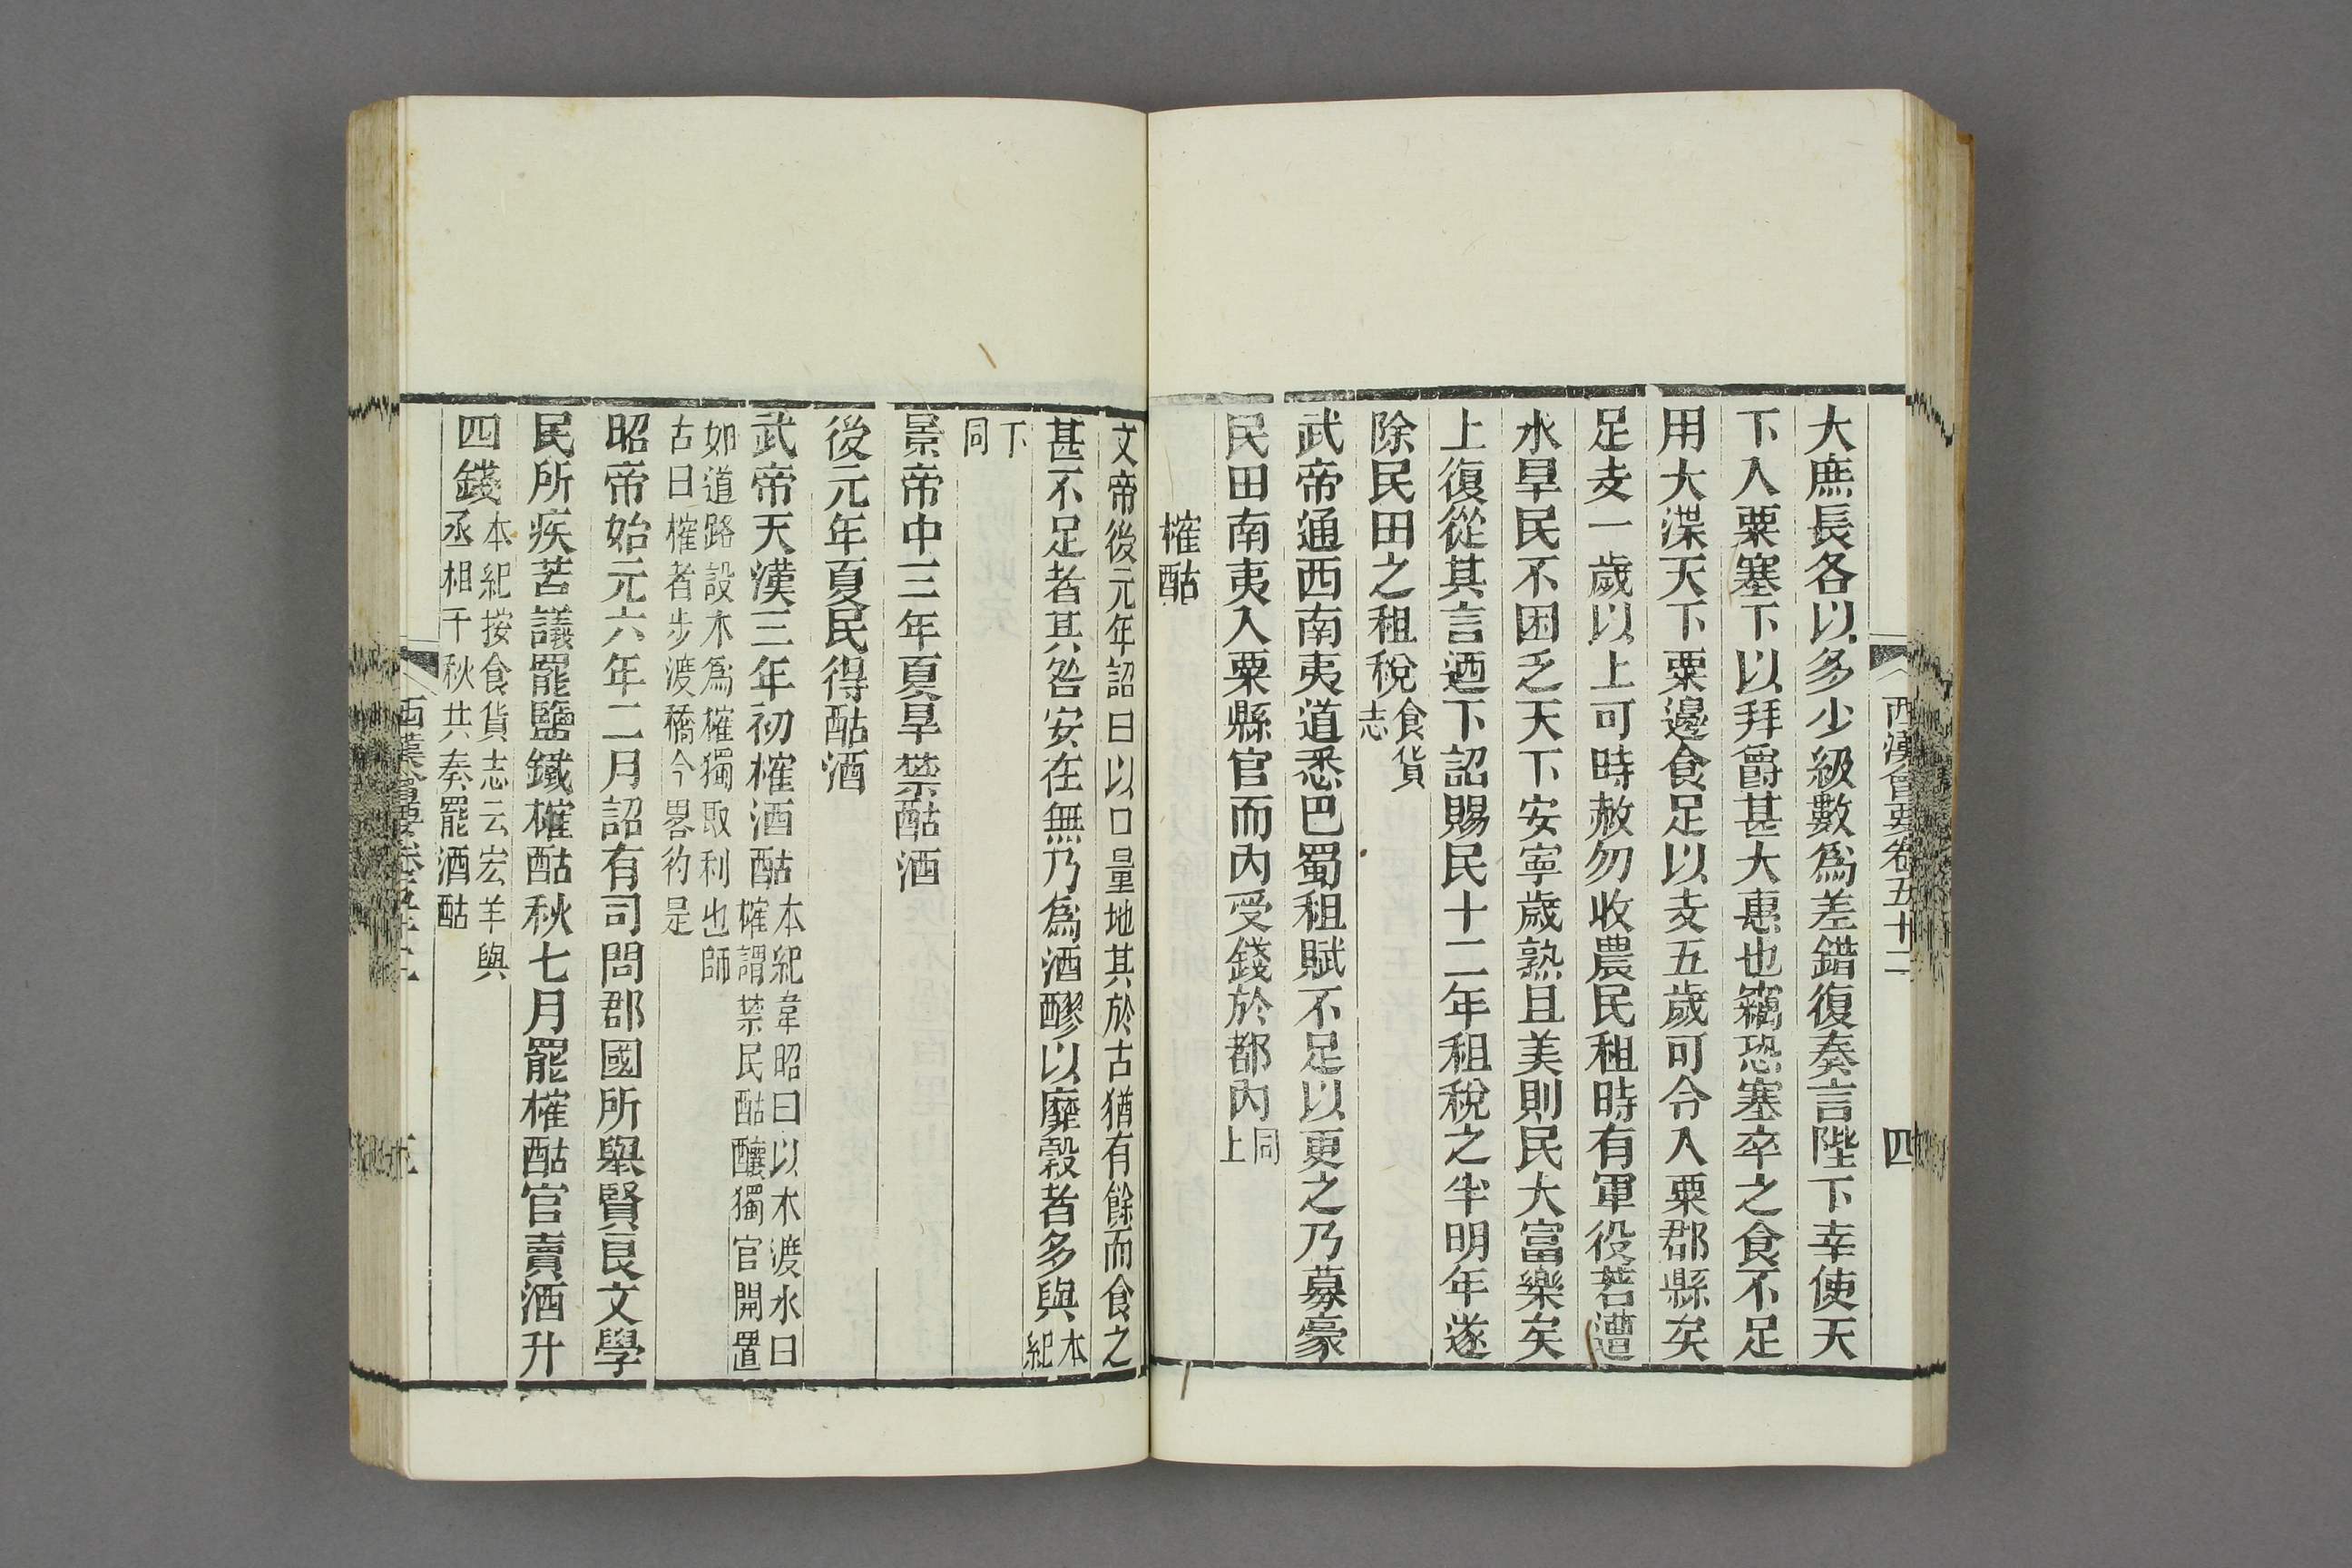 西漢會要卷五十二
四
大庶長各以多少級數爲差錯復奏言陛下幸使天
下入粟塞下以拜爵甚大惠也竊恐塞卒之食不足
用大渫天下粟邊食足以支五歲可令入粟郡縣矣
足支一歲以上可時赦勿收農民租時有軍役若遭
水旱民不困乏天下安寧歲熟且美則民大富樂矣
上復從其言迺下詔賜民十二年租稅之半明年遂
除民田之租稅食貨
志
武帝通西南夷道悉巴蜀租賦不足以更之乃募豪
民田南夷入粟縣官而內受錢於都內同
上
榷酤
文帝後元年詔曰以口量地其於古猶有餘而食之
甚不足者其咎安在無乃爲酒醪以靡穀者多與本
紀
下
同
景帝中三年夏旱禁酤酒
後元年夏民得酤酒
武帝天漢三年初榷酒酤本紀韋昭曰以木渡水曰
榷謂禁民酤釀獨官開置
如道路設木爲榷獨取利也師
古曰榷者步渡橋今畧彴是
昭帝始元六年二月詔有司問郡國所舉賢良文學
民所疾苦議罷鹽鐵榷酤秋七月罷榷酤官賣酒升
四錢本紀按食貨志云宏羊與
丞相千秋共奏罷酒酤
西漢會要卷五十二